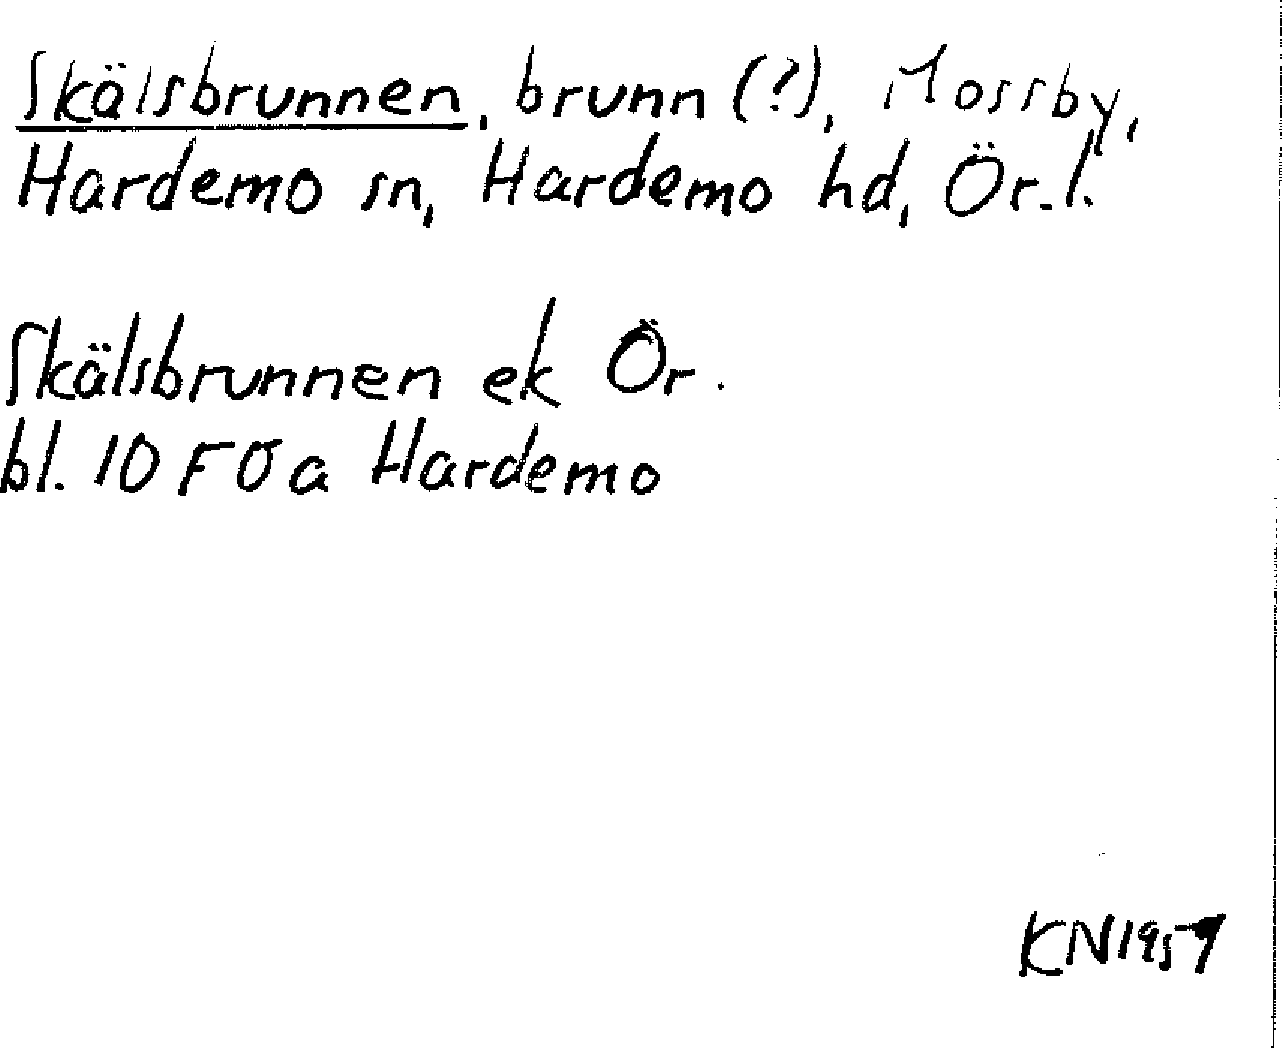 Skälsbrunnen, brunn (?), Mossby,
Hardemo sn, Hardemo hd, Ör.l.
Skälsbrunnen ek Ör.
bl. 10 F 0 a Hardemo
KN 1957